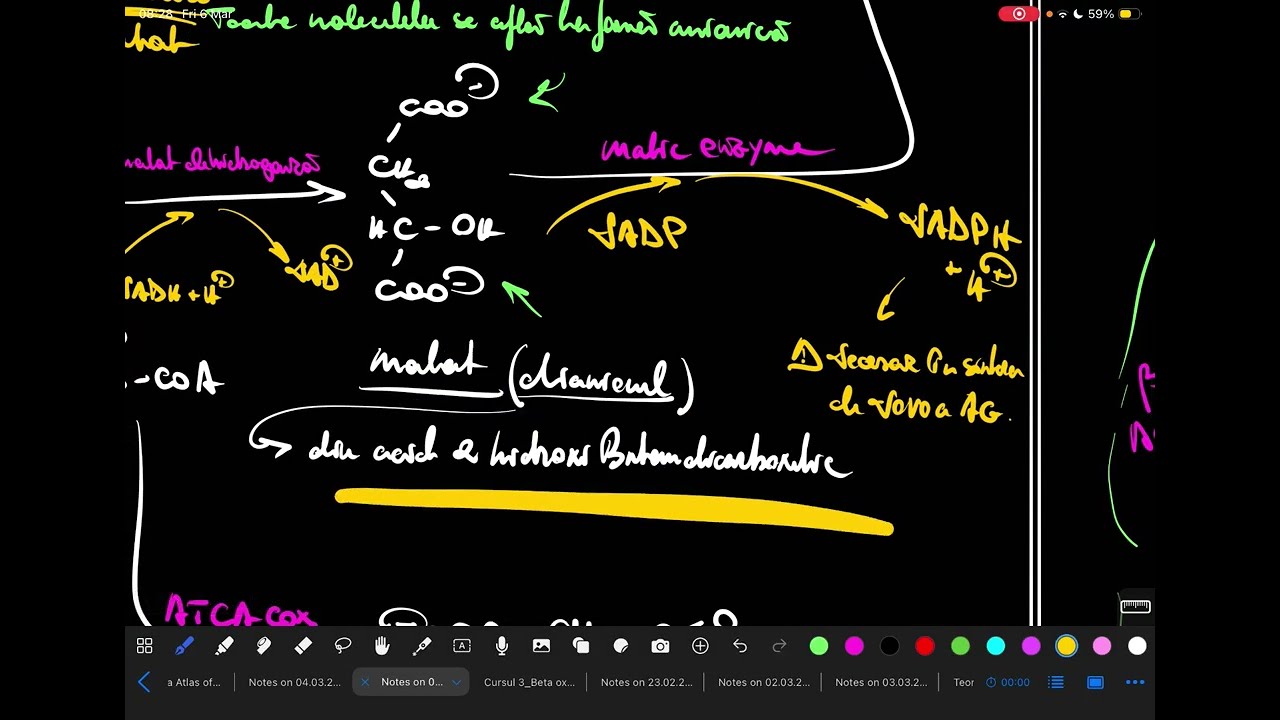 08:28 Fri 6 Mar
59%
Toate moleculele se află în formă anionică
COO⁻
CH₂
HC-OH
COO⁻
malat dehidrogenază
malic enzyme
NADP
NADPH
+ H⁺
NADH + H⁺
NAD⁺
-COA
malat (dianionul)
din acid 2 hidroxi Butandicarboxilic
Necesar în sinteza
de novo a AG.
ATCA-cox
a Atlas of...
Notes on 04.03.2...
Notes on 0...
Cursul 3_Beta ox...
Notes on 23.02.2...
Notes on 02.03.2...
Notes on 03.03.2...
Teor
00:00